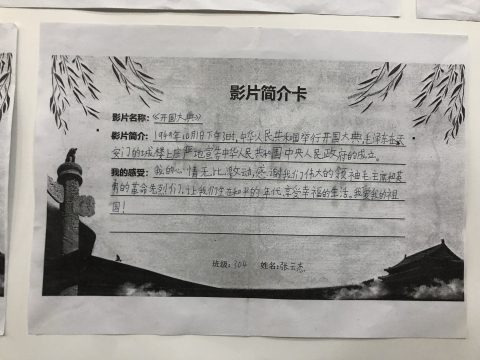 影片简介卡
影片名称：《开国大典》
影片简介：1949年10月1日下午3时，中华人民共和国举行开国大典，毛泽东在天
安门的城楼上庄严地宣告中华人民共和国中央人民政府的成立。
我的感受：我的心情无比激动，感谢我们伟大的领袖毛主席和甚
的革命先烈们，让我们生在和平的年代，享受幸福的生活。我爱我的祖
国！
班级：304 姓名：张云志